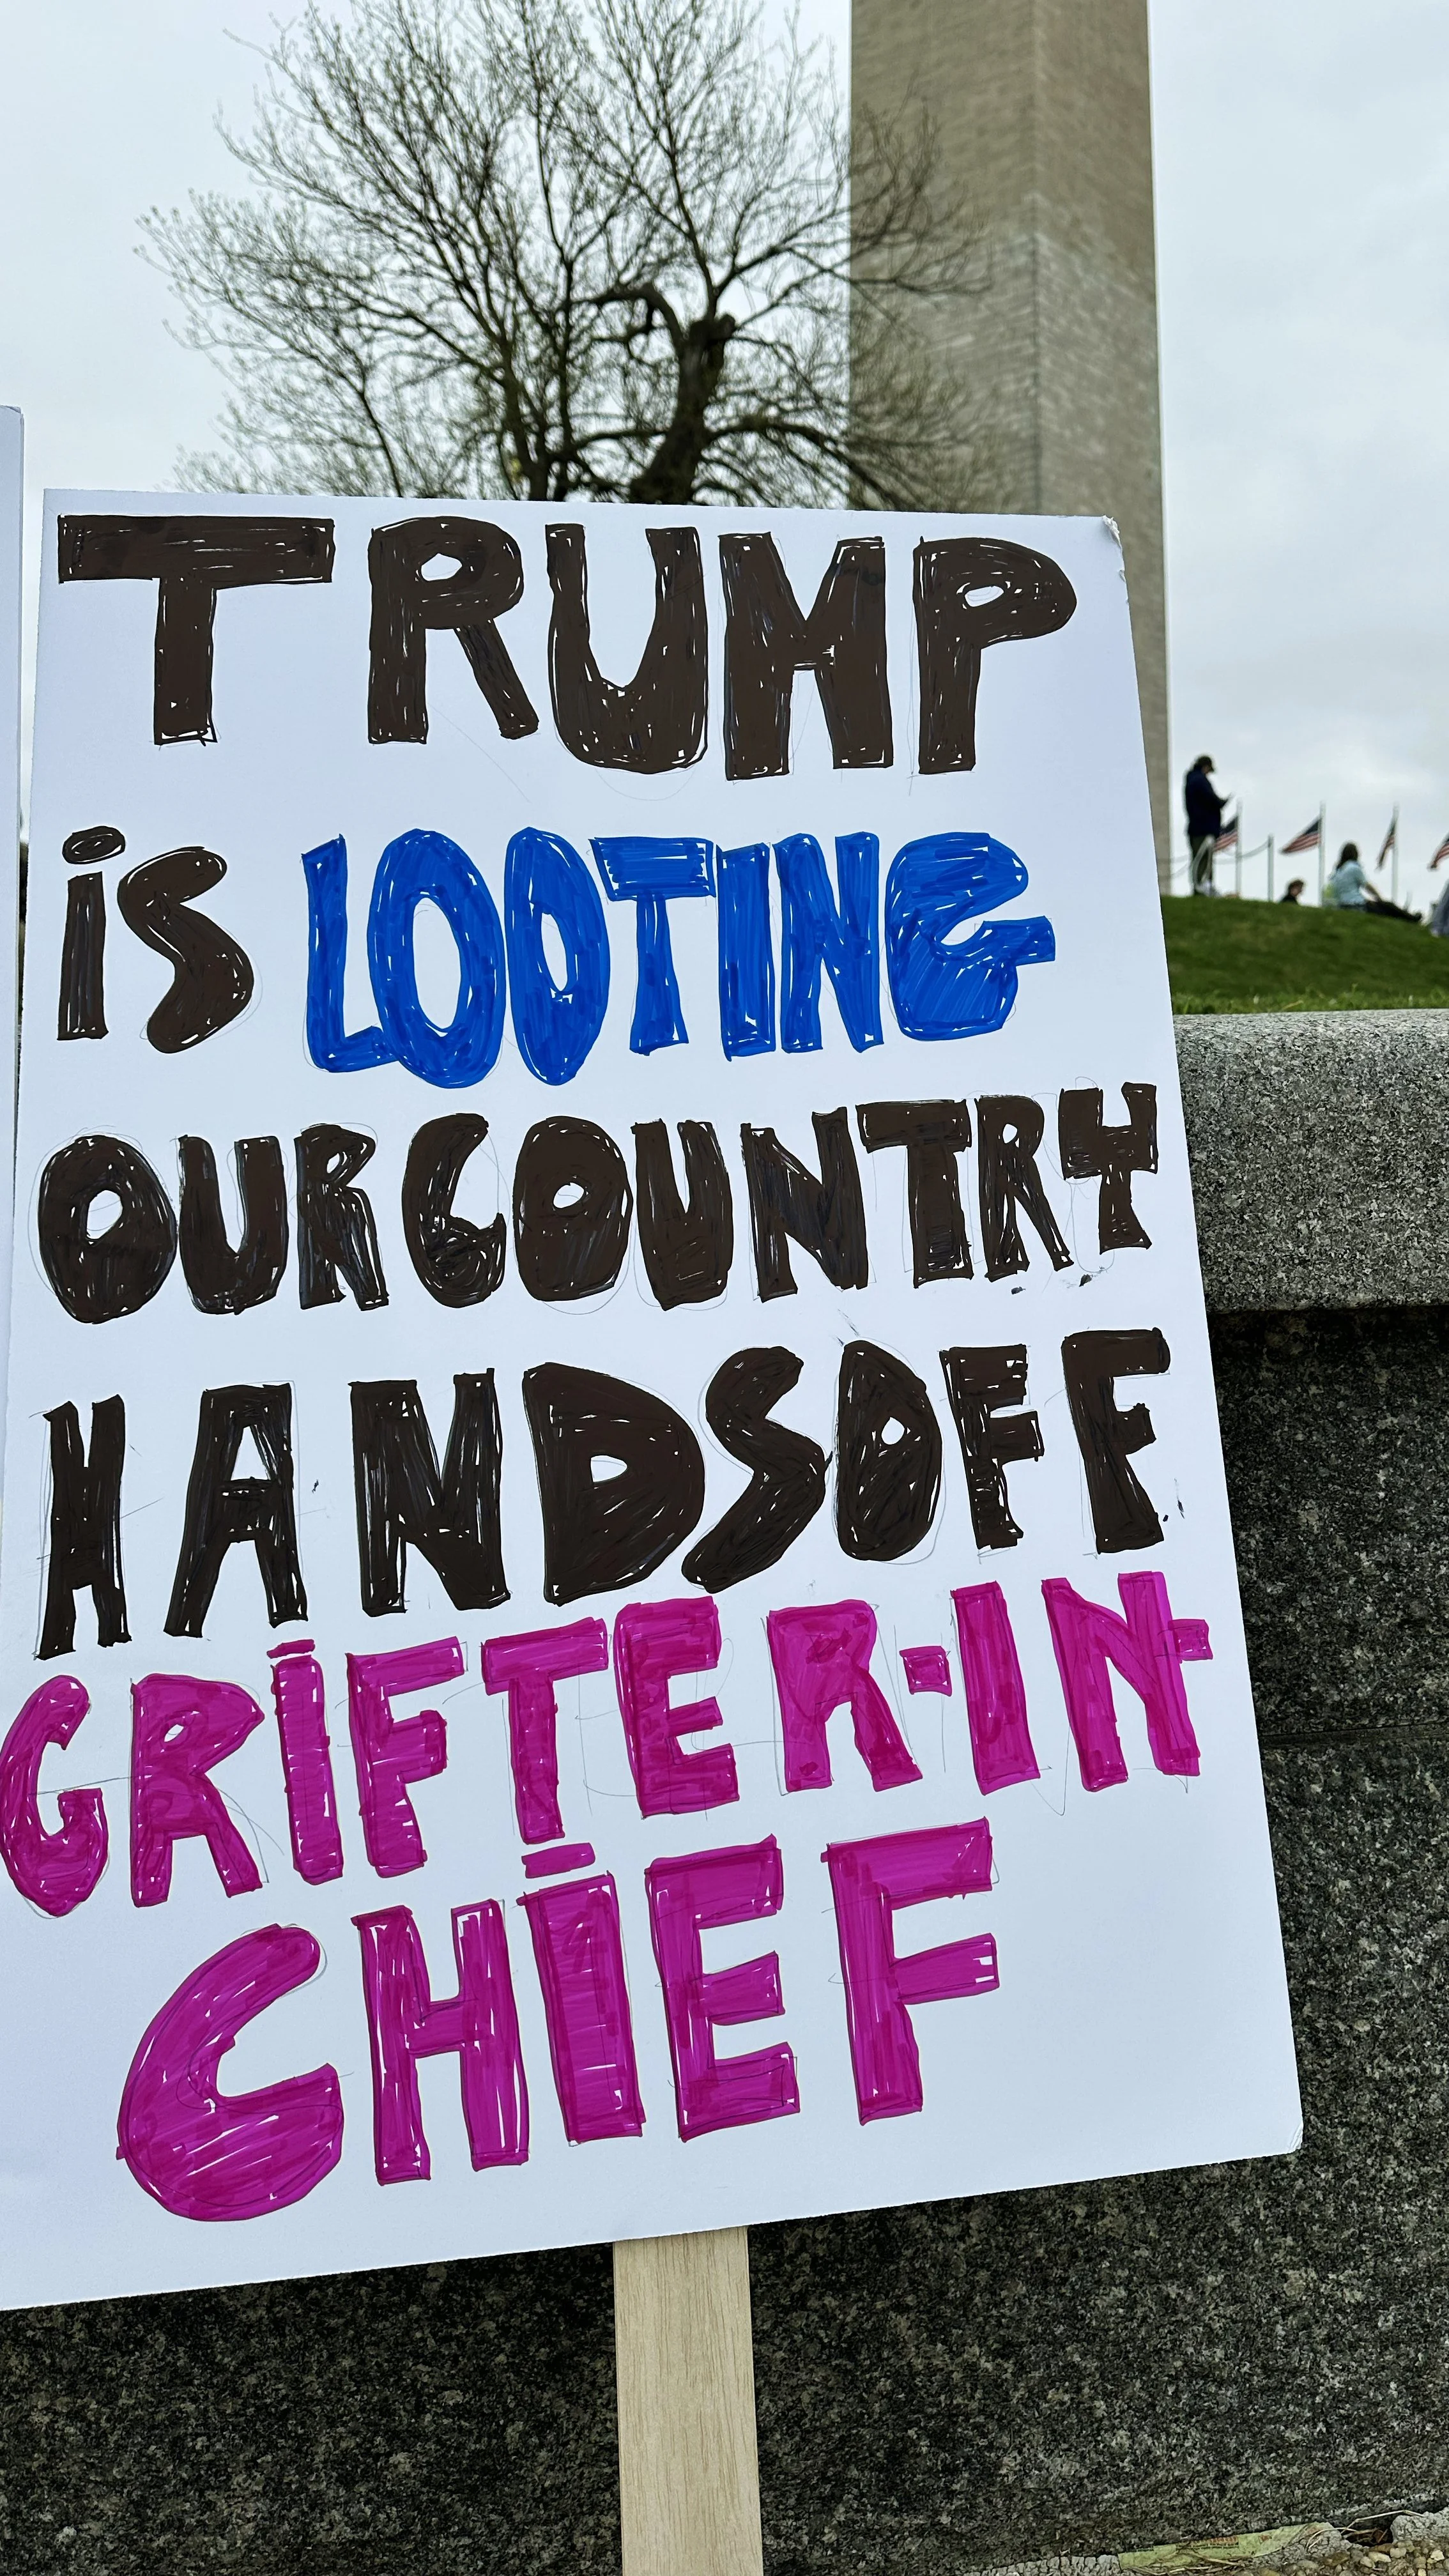 TRUMP
iS LOOTING
OUR COUNTRY
HANDS OFF
GRiFTER-IN-
CHiEF